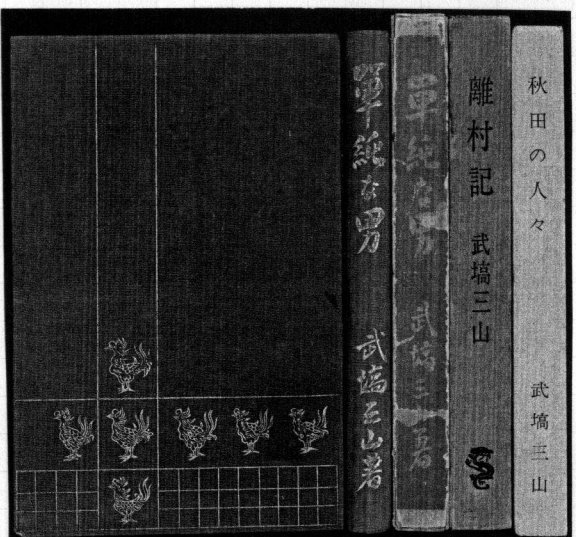 単純な男 武塙三山著
単純な男 武塙三山著
離村記 武塙三山
秋田の人々 武塙三山